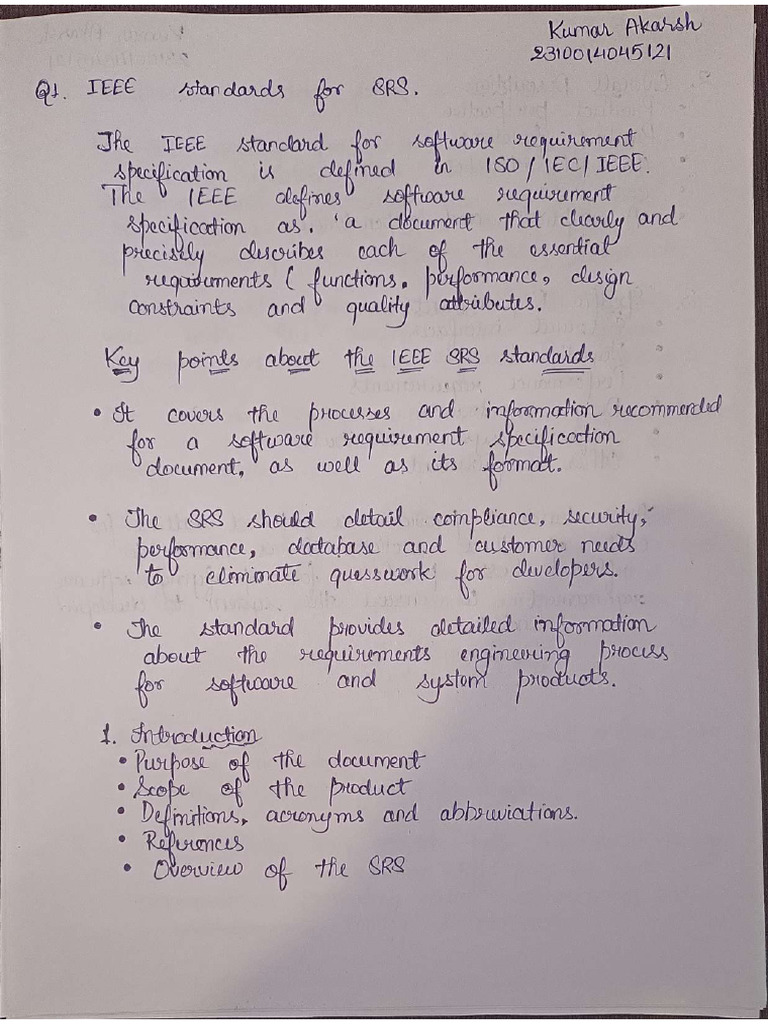 Kumar Akarsh
2310014045121
Q1. IEEE standards for SRS.
The IEEE standard for software requirement
specification is defined in ISO/IEC/IEEE.
The IEEE defines software requirement
specification as. 'a document that clearly and
precisely describes each of the essential
requirements ( functions, performance, design
constraints and quality attributes.
Key points about the IEEE SRS standards
• It covers the processes and information recommended
for a software requirement specification
document, as well as its format.
• The SRS should detail compliance, security,
performance, database and customer needs
to eliminate guesswork for developers.
• The standard provides detailed information
about the requirements engineering process
for software and system products.
1. Introduction
• Purpose of the document
• Scope of the product
• Definitions, acronyms and abbreviations.
• References
• Overview of the SRS